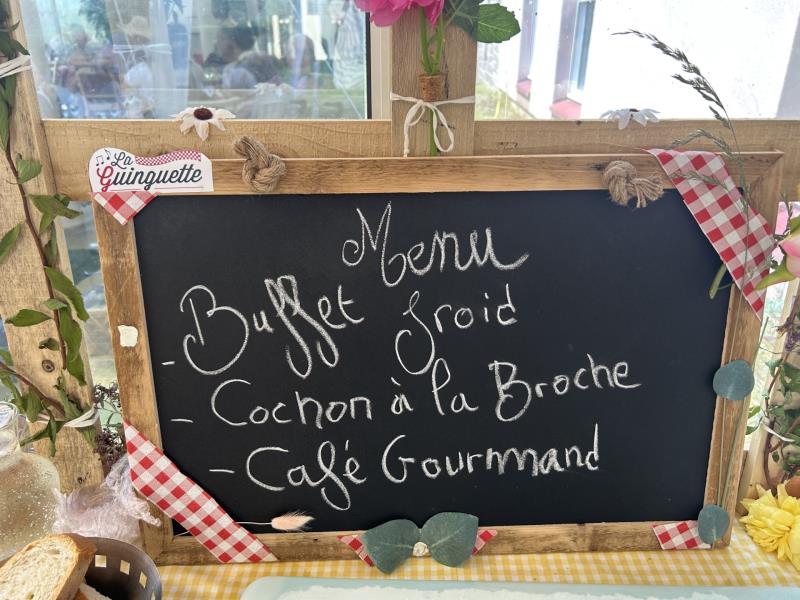 La
Guinguette
Menu
- Buffet froid
- Cochon à la Broche
- Café Gourmand